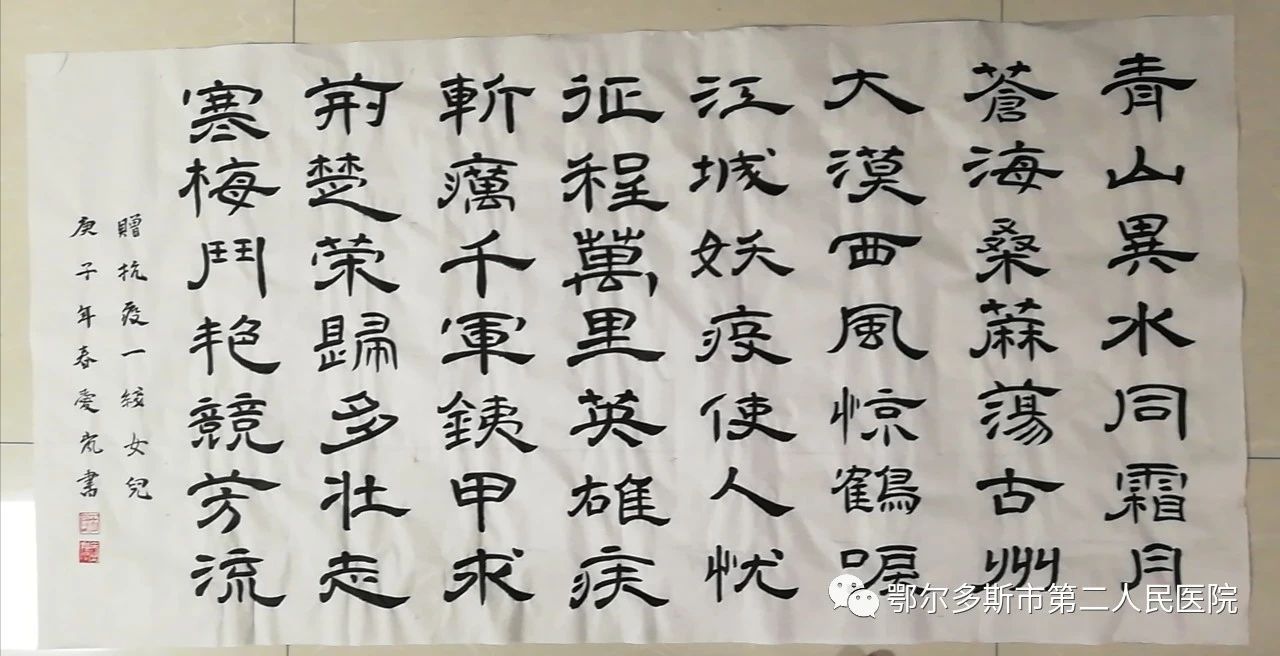 青山異水同霜月
蒼海桑蔴蕩古州
大漠西風惊鶴唳
江城妖疫使人忧
征程萬里英雄疾
斬癘千軍銕甲求
荊楚荣歸多壮志
寒梅鬥艳競芳流
贈抗疫一线女兒
庚子年春爱岚書
鄂尔多斯市第二人民医院